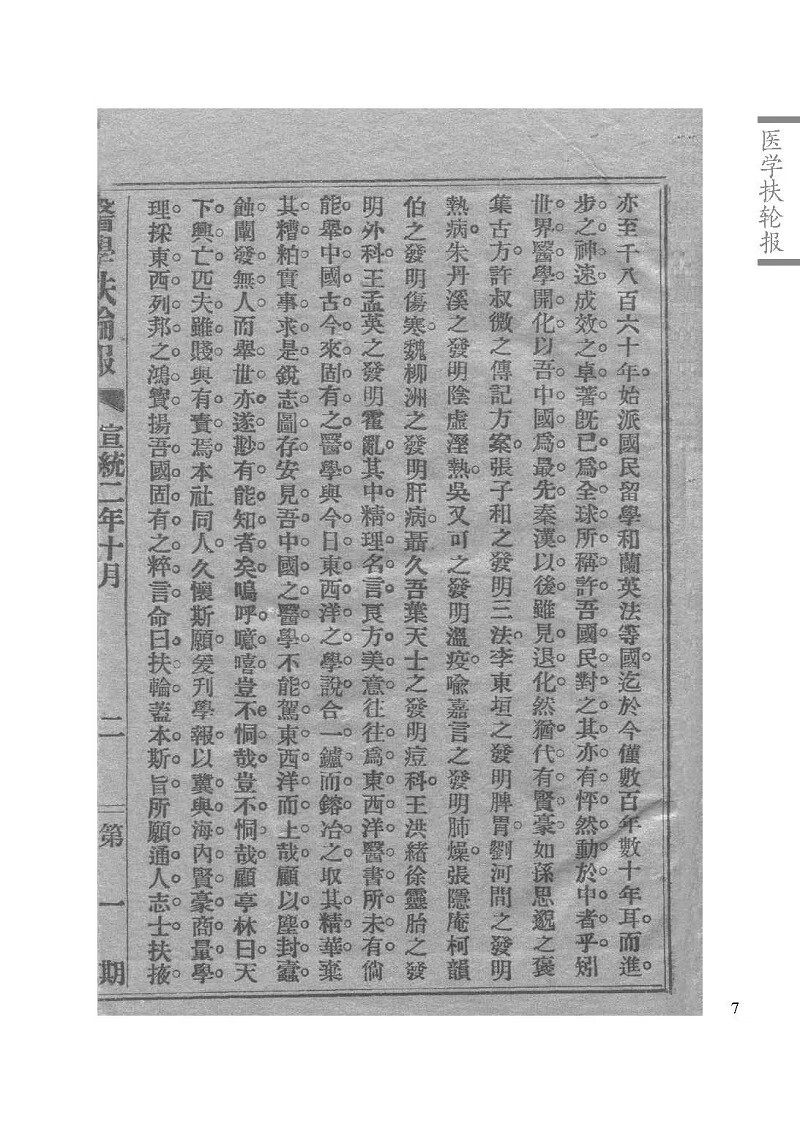 医学扶轮报
亦至千八百六十年。始派國民留學和蘭英法等國。迄於今僅數百年數十年耳。而進。
步之神速。成效之卓著。旣已爲全球所稱許。吾國民對之。其亦有怦然動於中者乎。矧
世界醫學開化。以吾中國爲最先。秦漢以後。雖見退化。然猶代有賢豪。如孫思邈之褒
集古方。許叔微之傳記方案。張子和之發明三法。李東垣之發明脾胃。劉河間之發明
熱病。朱丹溪之發明陰虛溼熱。吳又可之發明溫疫。喩嘉言之發明肺燥。張隱庵柯韻
伯之發明傷寒。魏柳洲之發明肝病。聶久吾葉天士之發明痘科。王洪緒徐靈胎之發
明外科。王孟英之發明霍亂。其中精理名言。良方美意。往往爲東西洋醫書所未有。倘
能舉中國古今來固有之醫學。與今日東西洋之學說。合一鑪而鎔冶之。取其精華。棄
其糟粕。實事求是。銳志圖存。安見吾中國之醫學。不能駕東西洋而上哉。顧以塵封蠹
蝕。闡發無人。而舉世亦遂尠有能知者矣。嗚呼噫嘻。豈不恫哉。豈不恫哉。顧亭林曰。天
下興亡。匹夫雖賤。與有責焉。本社同人。久懷斯願。爰刊學報。以冀與海內賢豪。商量學
理。採東西列邦之鴻寶。揚吾國固有之粹言。命曰扶輪。蓋本斯旨。所願通人志士。扶掖。
醫學扶輪報 宣統二年十月 二 第一期
7